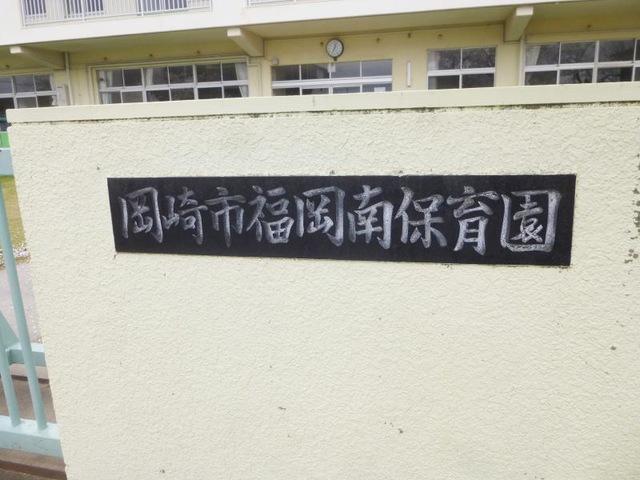 岡崎市福岡南保育園